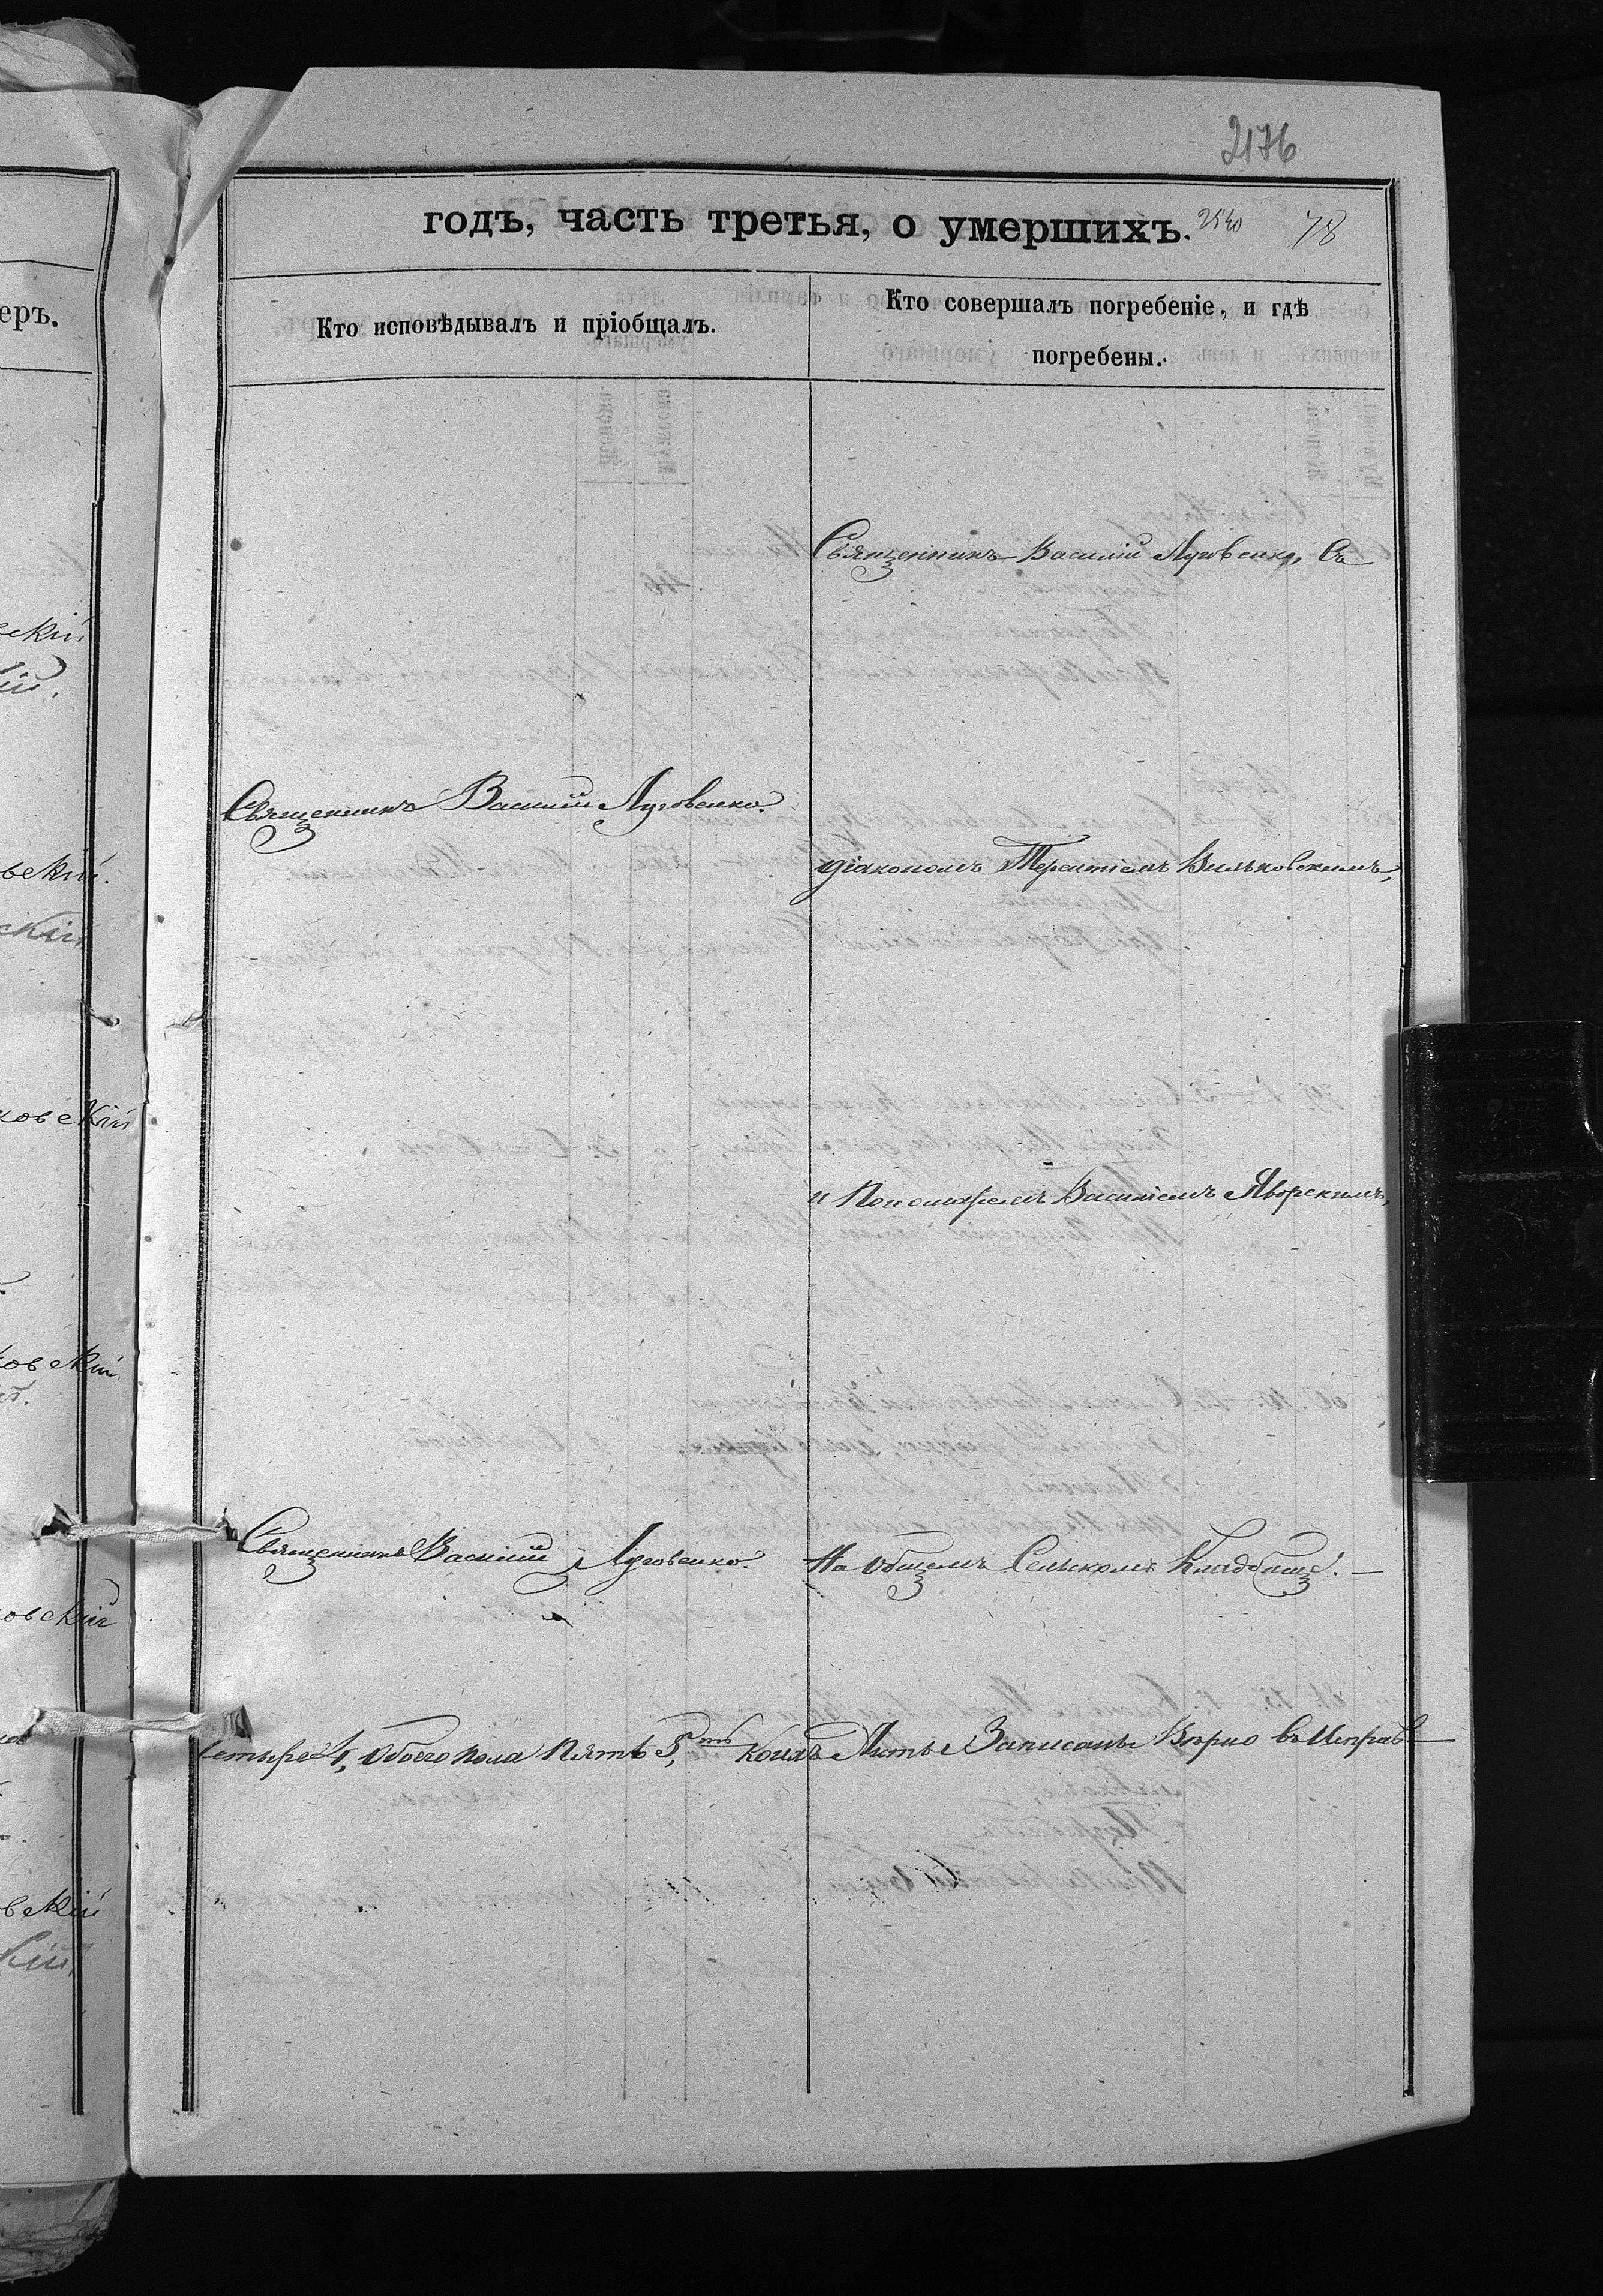 2176
годъ, часть третья, о умершихъ.
2540
78
еръ.
Кто исповѣдывалъ и пріобщалъ.
Кто совершалъ погребеніе, и гдѣ
погребены.
Священникъ Василій Луговенко, Съ
Священникъ Василій Луговенко.
діакономъ Терентіемъ Вильковскимъ,
и Пономаремъ Василіемъ Яворскимъ,
Священникъ Василій Луговенко.
На общемъ Сельскомъ Кладбищѣ.
четыре 4, обоего пола Пять 5, коихъ Записаны Вѣрно въ Исправ